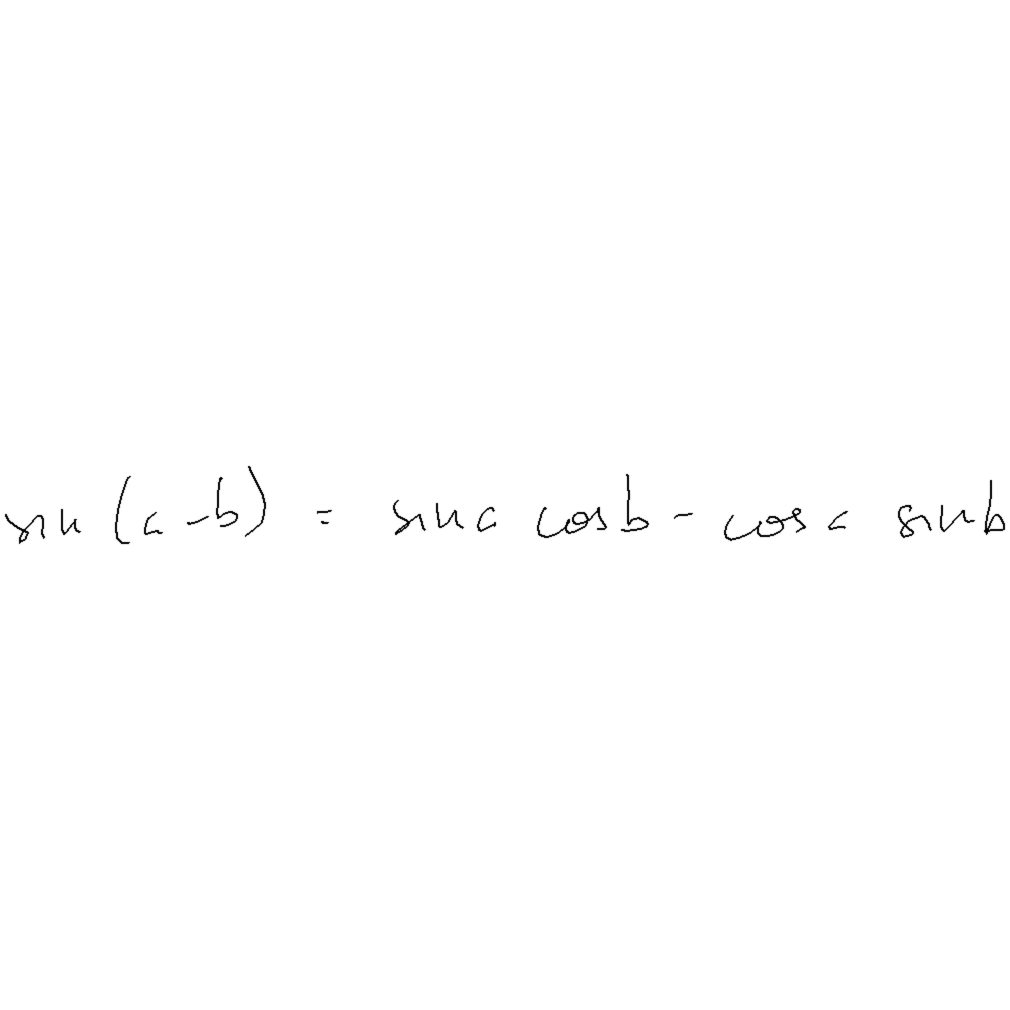 sin (a-b) = sin a cos b - cos a sin b